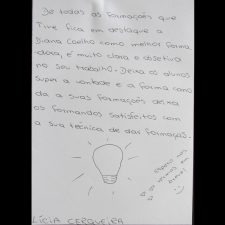 De todas as formações que
tive fica em destaque a
Diana Coelho como melhor forma
dora, é muito clara e objetiva
no seu trabalho. Deixa os alunos
super a vontade e a forma como
da a suas formações deixa
os formandos satisfeitos com
a sua técnica de dar formação.
espero nos
vermos em
breve!
Lícia Cerqueira